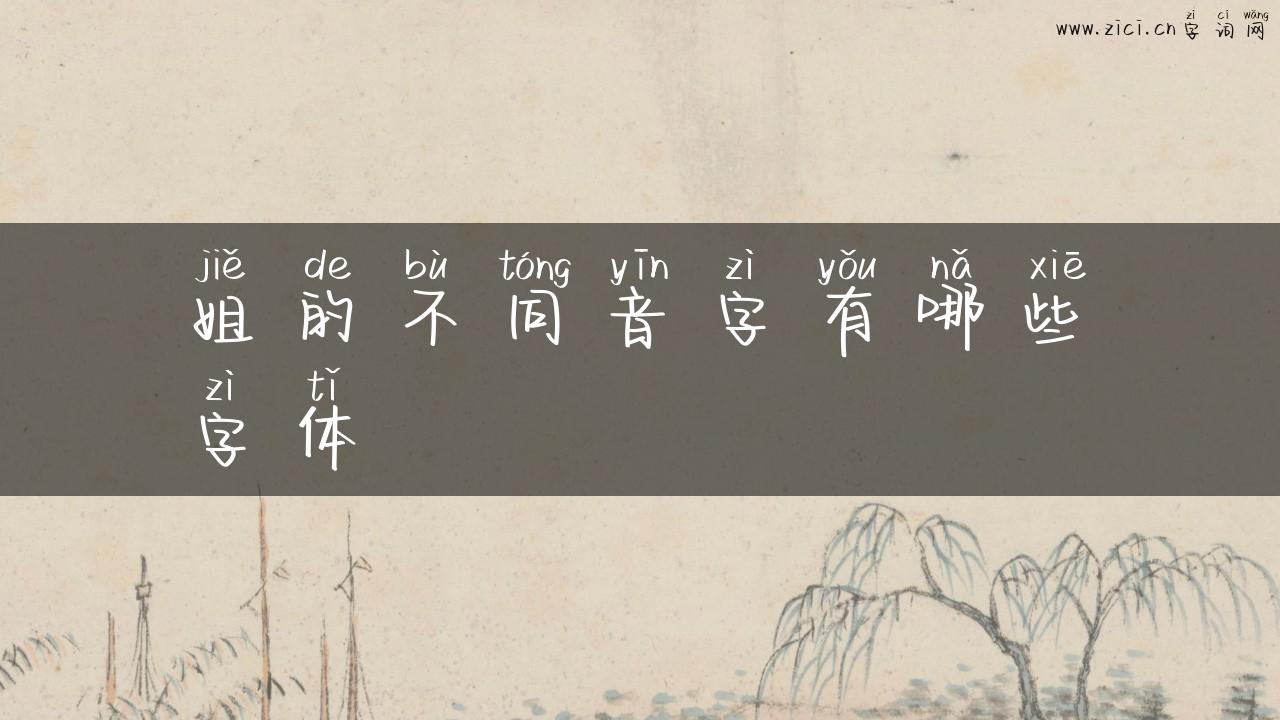 zì cí wǎng
www.zici.cn 字 词 网
jiě de bù tóng yīn zì yǒu nǎ xiē
姐 的 不 同 音 字 有 哪 些
zì tǐ
字 体